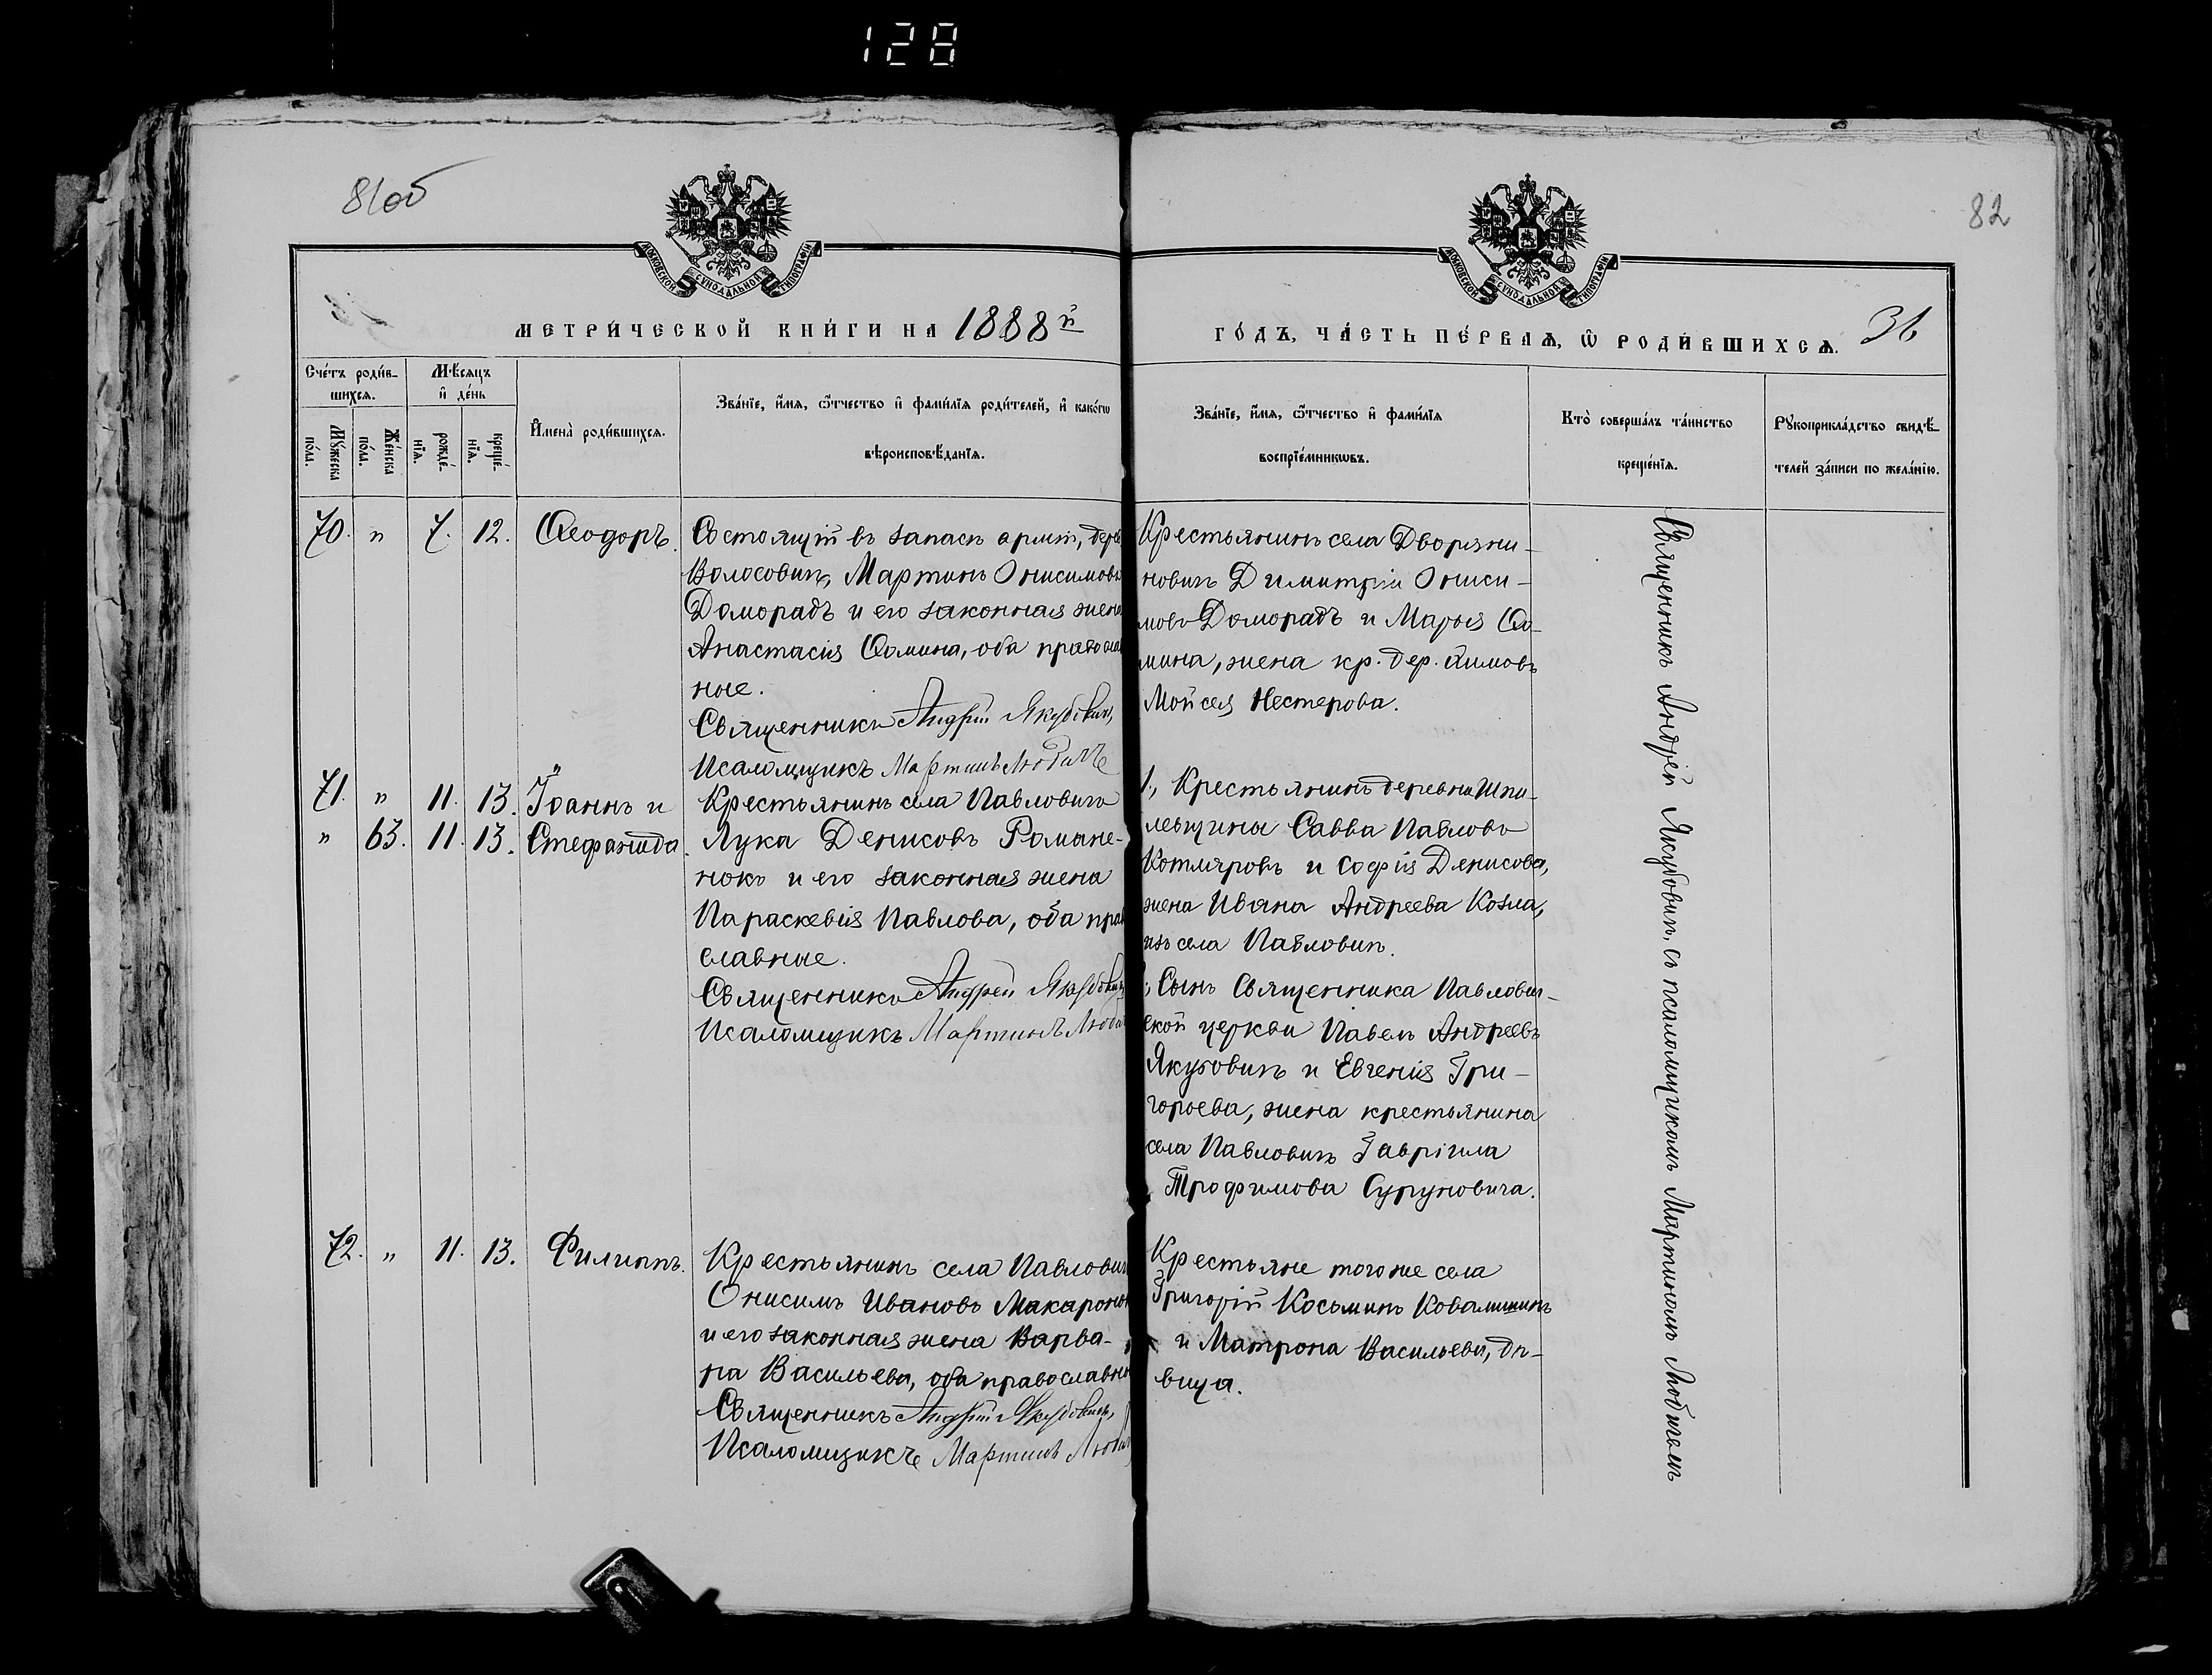 128
81об
82
МОСКОВСКОЙ СѴНОДАЛЬНОЙ ТИПОГРАФІИ
МОСКОВСКОЙ СѴНОДАЛЬНОЙ ТИПОГРАФІИ
МЕТРИ́ЧЕСКОЙ КНИ́ГИ НА 1888й
ГО́ДЪ, ЧА́СТЬ ПЕ́РВАѦ, Ѡ҆ РОДИ́ВШИХСѦ.
Сче́тъ роди́в-
шихсѧ.
Мѣ́сѧцъ
и҆ де́нь
Мꙋ́жеска
по́ла.
Же́нска
по́ла.
рожде́-
нїѧ.
креще́-
нїѧ.
И҆мена̀ роди́вшихсѧ.
Зва́нїе, и҆́мѧ, ѻ҆́тчество и҆ фами́лїѧ роди́телей, и҆ како́гѡ
вѣроисповѣ́данїѧ.
Зва́нїе, и҆́мѧ, ѻ҆́тчество и҆ фами́лїѧ
воспрїе́мникѡвъ.
Кто̀ соверша́лъ та́инство
креще́нїѧ.
Рꙋкоприкла́дство свидѣ́-
телей за́писи по жела́нїю.
70. " 7. 12. Ѳеодоръ.
Состоящій въ запасѣ арміи, дерев
Волосовичъ, Мартинъ Онисимовъ
Доморадъ и его законная жена
Анастасія Ѳомина, оба православ
ные.
Священникъ Андрей Якубовичъ,
Псаломщикъ Мартинъ Любичъ
Крестьянинъ села Дворяни-
новичъ Димитрій Ониси-
мовъ Доморадъ и Марья Ѳо-
мина, жена кр. дер.
Мойсея Нестерова.
71. " 11. 13. Іоаннъ и
" 63. 11. 13. Стефанида.
Крестьянинъ села Павловичъ
Лука Денисовъ Романе-
нокъ и его законная жена
Параскевія Павлова, оба прав
славные.
Священникъ Андрей Якубовичъ
Псаломщикъ Мартинъ Люби
1., Крестьянинъ деревни Шпи-
левщины Савва Павловъ
Котляровъ и Софія Денисова,
жена Ивана Андреева Козла,
изъ села Павловичъ.
Сынъ Священника Павлович-
ской церкви Павелъ Андреевъ
Якубовичъ и Евгенія Гри-
горьева, жена крестьянина
села Павловичъ Гавріила
Трофимова Суруновича.
72. " 11. 13. Филиппъ.
Крестьянинъ села Павлович
Онисимъ Ивановъ Макаронок
и его законная жена Варва-
ра Васильева, оба православны
Священникъ Андрей Якубовичъ,
Псаломщикъ Мартинъ Любич
Крестьяне тогоже села
Григорій Косминъ
и Матрона Васильева, дѣ-
вица.
Священникъ Андрей Якубовичъ, съ псаломщикомъ Мартиномъ Любичемъ